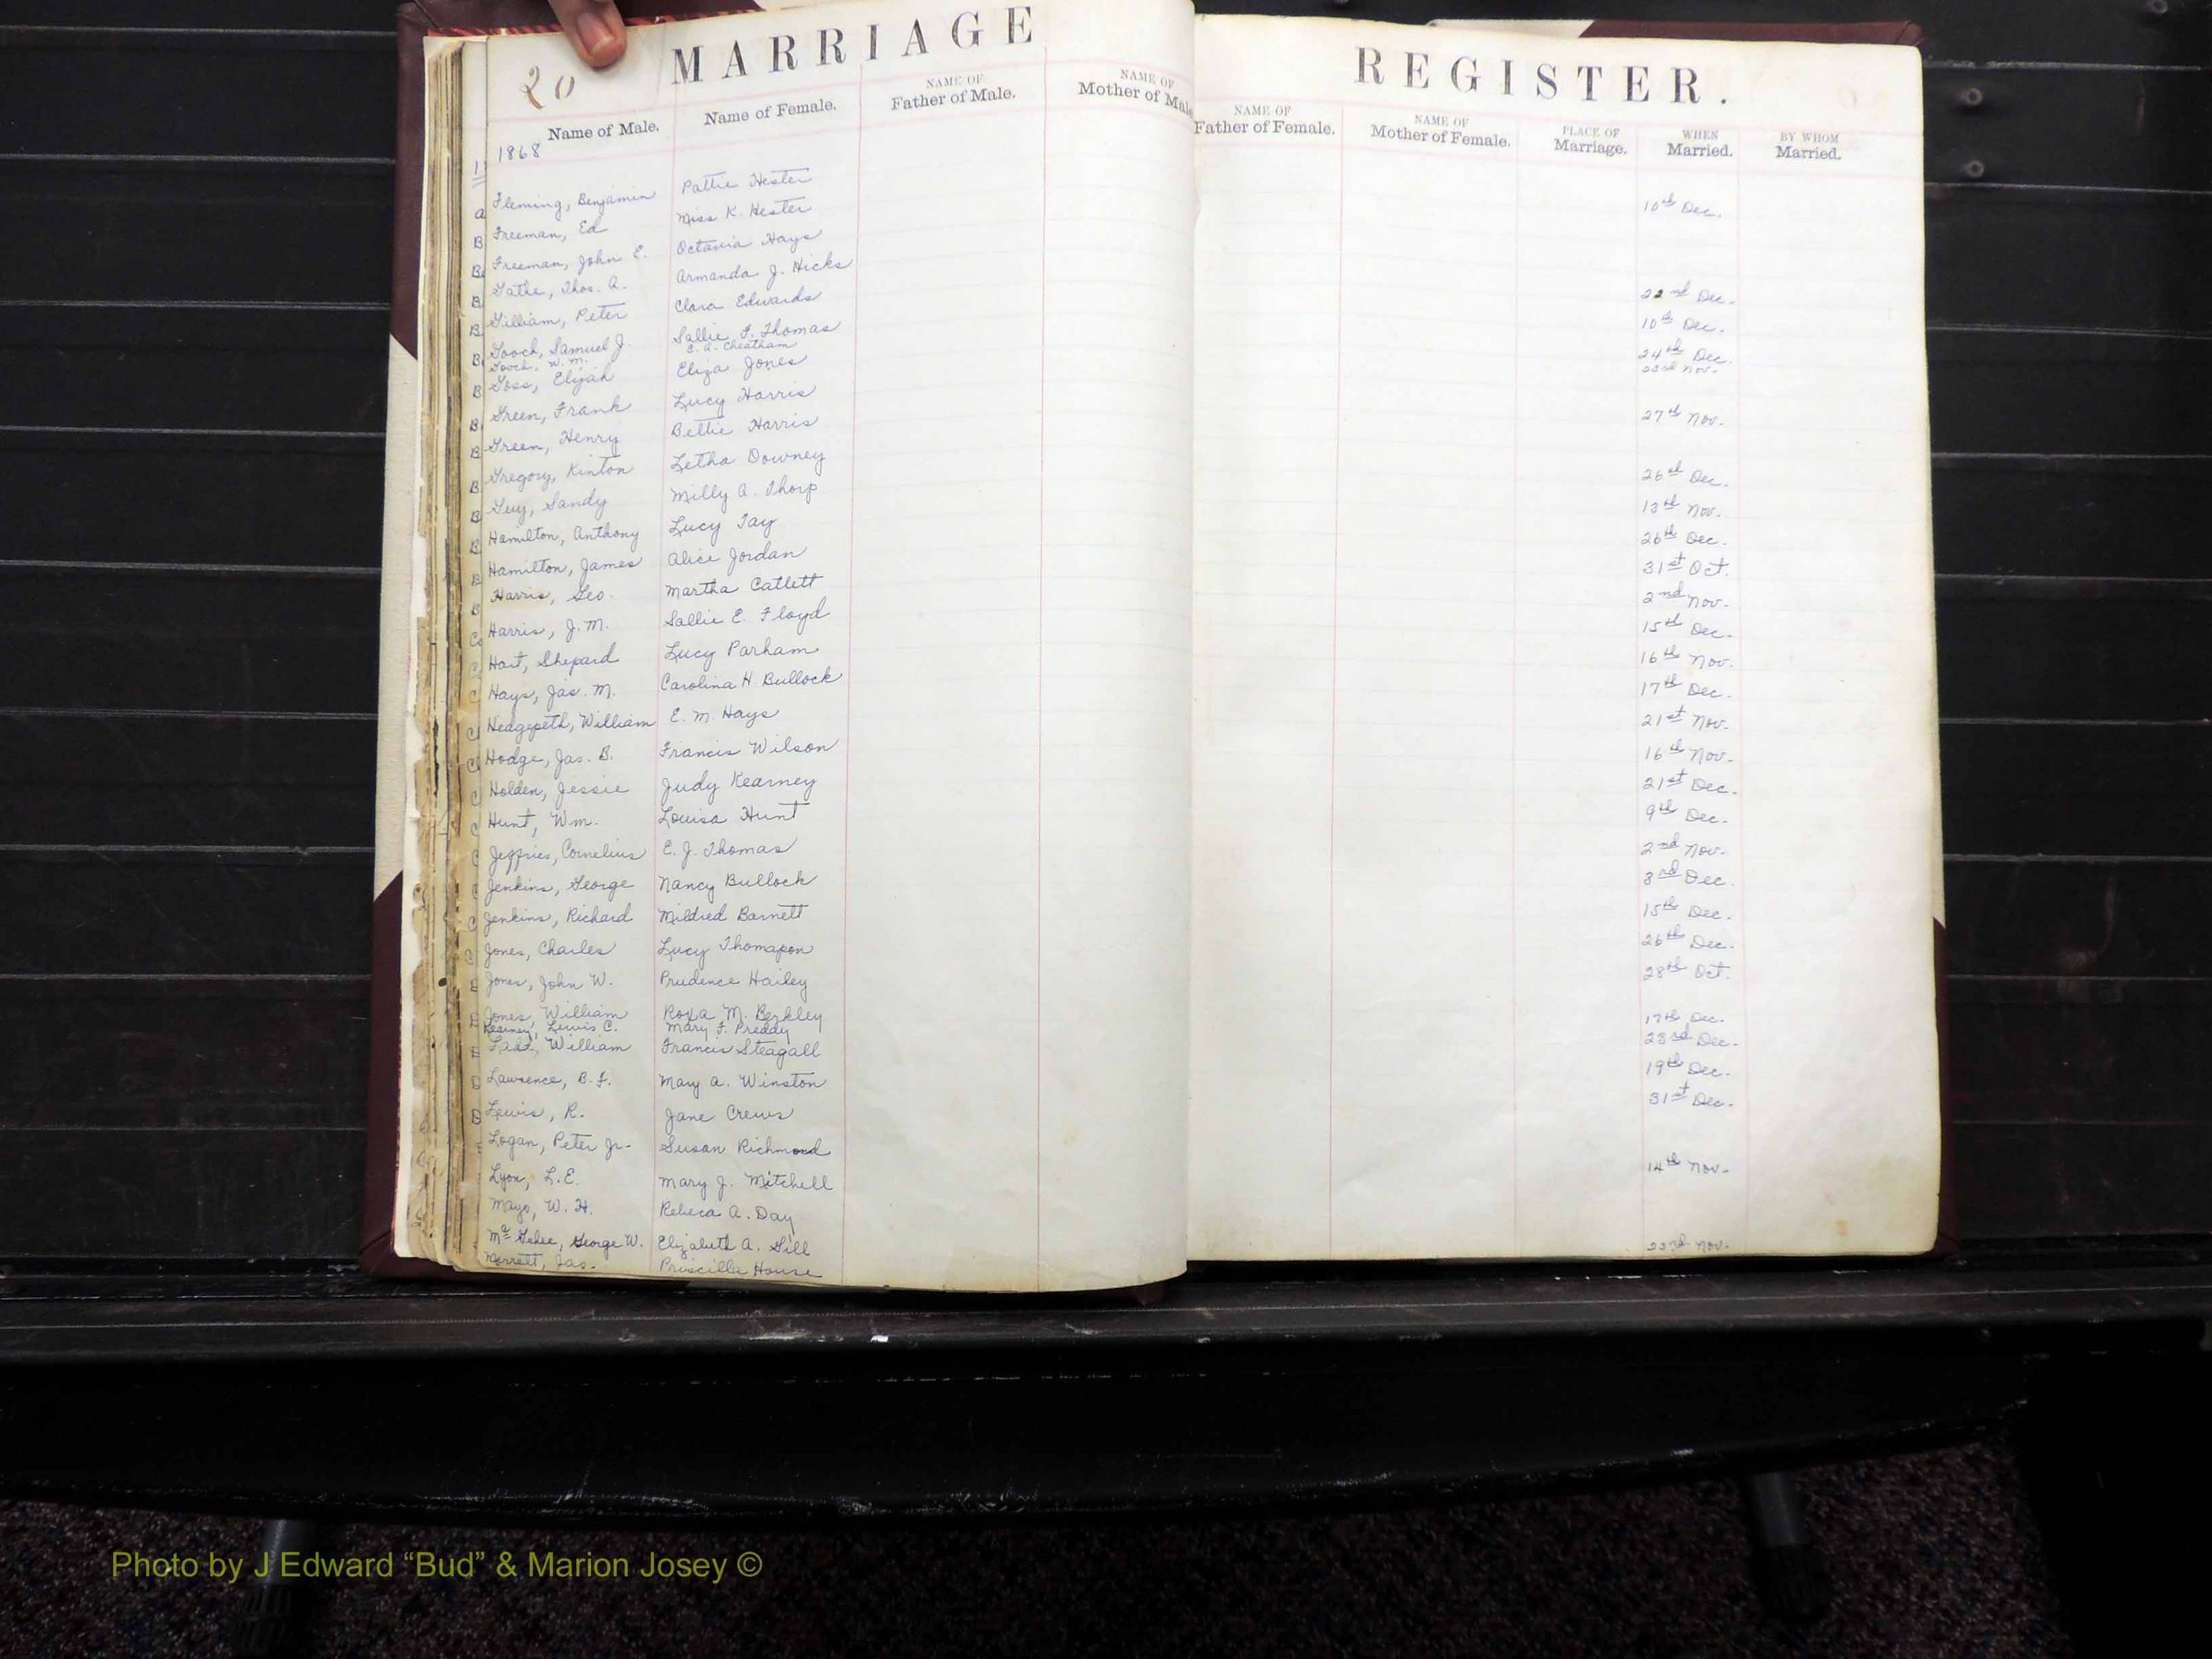 20
MARRIAGE REGISTER.
Name of Male. Name of Female. NAME OF Father of Male. NAME OF Mother of Male NAME OF Father of Female. NAME OF Mother of Female. PLACE OF Marriage. WHEN Married. BY WHOM Married.
1868
Fleming, Benjamin Pattie Hester 10th Dec.
Freeman, Ed Miss K. Hester
Freeman, John E. Octavia Hays
Thos. A. Armanda J. Hicks 22nd Dec.
Gilliam, Peter Clara Edwards 10th Dec.
Gooch, Samuel J. Sallie F. Thomas 24th Dec.
Gooch, W. M. C. A. Cheatham 23rd Nov.
Goss, Elijah Eliza Jones
Green, Frank Lucy Harris 27th Nov.
Green, Henry Bettie Harris
Gregory, Kinton Letha Downey 26th Dec.
Guy, Sandy Milly A. Thorp 13th Nov.
Hamilton, Anthony Lucy Tay 26th Dec.
Hamilton, James Alice Jordan 31st Oct.
Harris, Geo. Martha Catlett 2nd Nov.
Harris, J. M. Sallie E. Floyd 15th Dec.
Hart, Shepard Lucy Parham 16th Nov.
Hays, Jas. M. Carolina H. Bullock 17th Dec.
Hedgepeth, William E. M. Hays 21st Nov.
Hodge, Jas. B. Francis Wilson 16th Nov.
Holden, Jessie Judy Kearney 21st Dec.
Hunt, Wm. Louisa Hunt 9th Dec.
Jeffries, Cornelius E. J. Thomas 2nd Nov.
Jenkins, George Nancy Bullock 3rd Dec.
Jenkins, Richard Mildred Barnett 15th Dec.
Jones, Charles Lucy Thomason 26th Dec.
Jones, John W. Prudence Hailey 28th Oct.
Jones, William Roxa M. Berkley 17th Dec.
Kearney, Lewis C. Mary F. Preddy 23rd Dec.
William Francis Steagall 19th Dec.
Lawrence, B. F. Mary A. Winston 31st Dec.
Lewis, R. Jane Crews
Logan, Peter Jr. Susan Richmond 14th Nov.
Lyon, L. E. Mary J. Mitchell
Mayo, W. H. Rebeca A. Day
McGehee, George W. Elizabeth A. Gill 23rd Nov.
Merrett, Jas. Priscilla House
Photo by J Edward “Bud” & Marion Josey ©